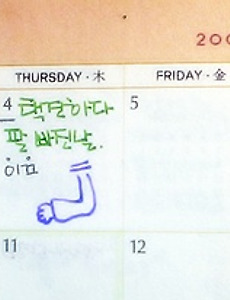 200
THURSDAY · 木 FRIDAY · 金
4 택견하다 5
팔 빠진날.
11 12